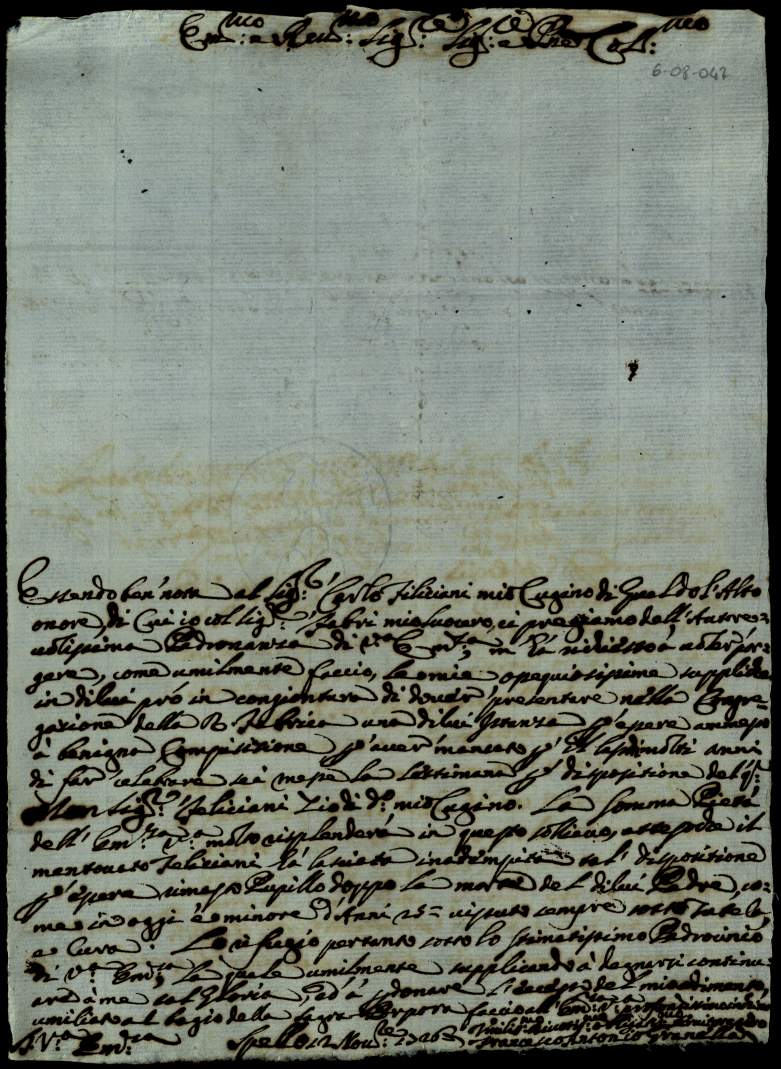 Em.mo e Reu.mo Sig.re Sig.re e Pne Col.mo
6-08-042
Essendo ben' nota al Sig.r Carlo Feliciani mio Cugino di Gualdo l'Alto
onore, di cui io col Sig.r Fabri mio Suocero, ci pregiamo dell'Autore=
uolissima Padronanza di V.a Em.za, m'hà richiesto à uoler por=
gere, come umilmente faccio, le mie ossequiosissime suppliche
in di lui prò in congiontura di douer' presentare nella Congre=
gazione della R. Fabrica una di lui Istanza p essere ammesso
à benigna Composizione p auer' mancato p il lasso di molti anni
di far celebrare sei messe la Settimana p disposizione del q.m
Mons.Sig.r Feliciani Zio di d.o mio Cugino. La somma Pietà
dell'Em.za V.a molto risplenderà in questo sollieuo, attesoche il
mentouato Feliciani hà lasciata inadempita tal' disposizione
p essere rimasto Pupillo doppo la morte del di lui Padre, co=
me in oggi è minore d'Anni 25= uissuto sempre sotto Tutela
e Cura. Lo rifugio pertanto sotto lo stimatissimo Padrocinio
di V.a Em.za, la quale umilmente supplicando à degnarsi continu=
are à me tal Gloria, ed à p donare l'eccesso del mio ardimento,
umiliato al bagio della Sagra Porpora faccio all'Em.za V.a profondissimo inchino
D V.a Em.za Spello 12 Nou.re 1726
Francesco Antonio